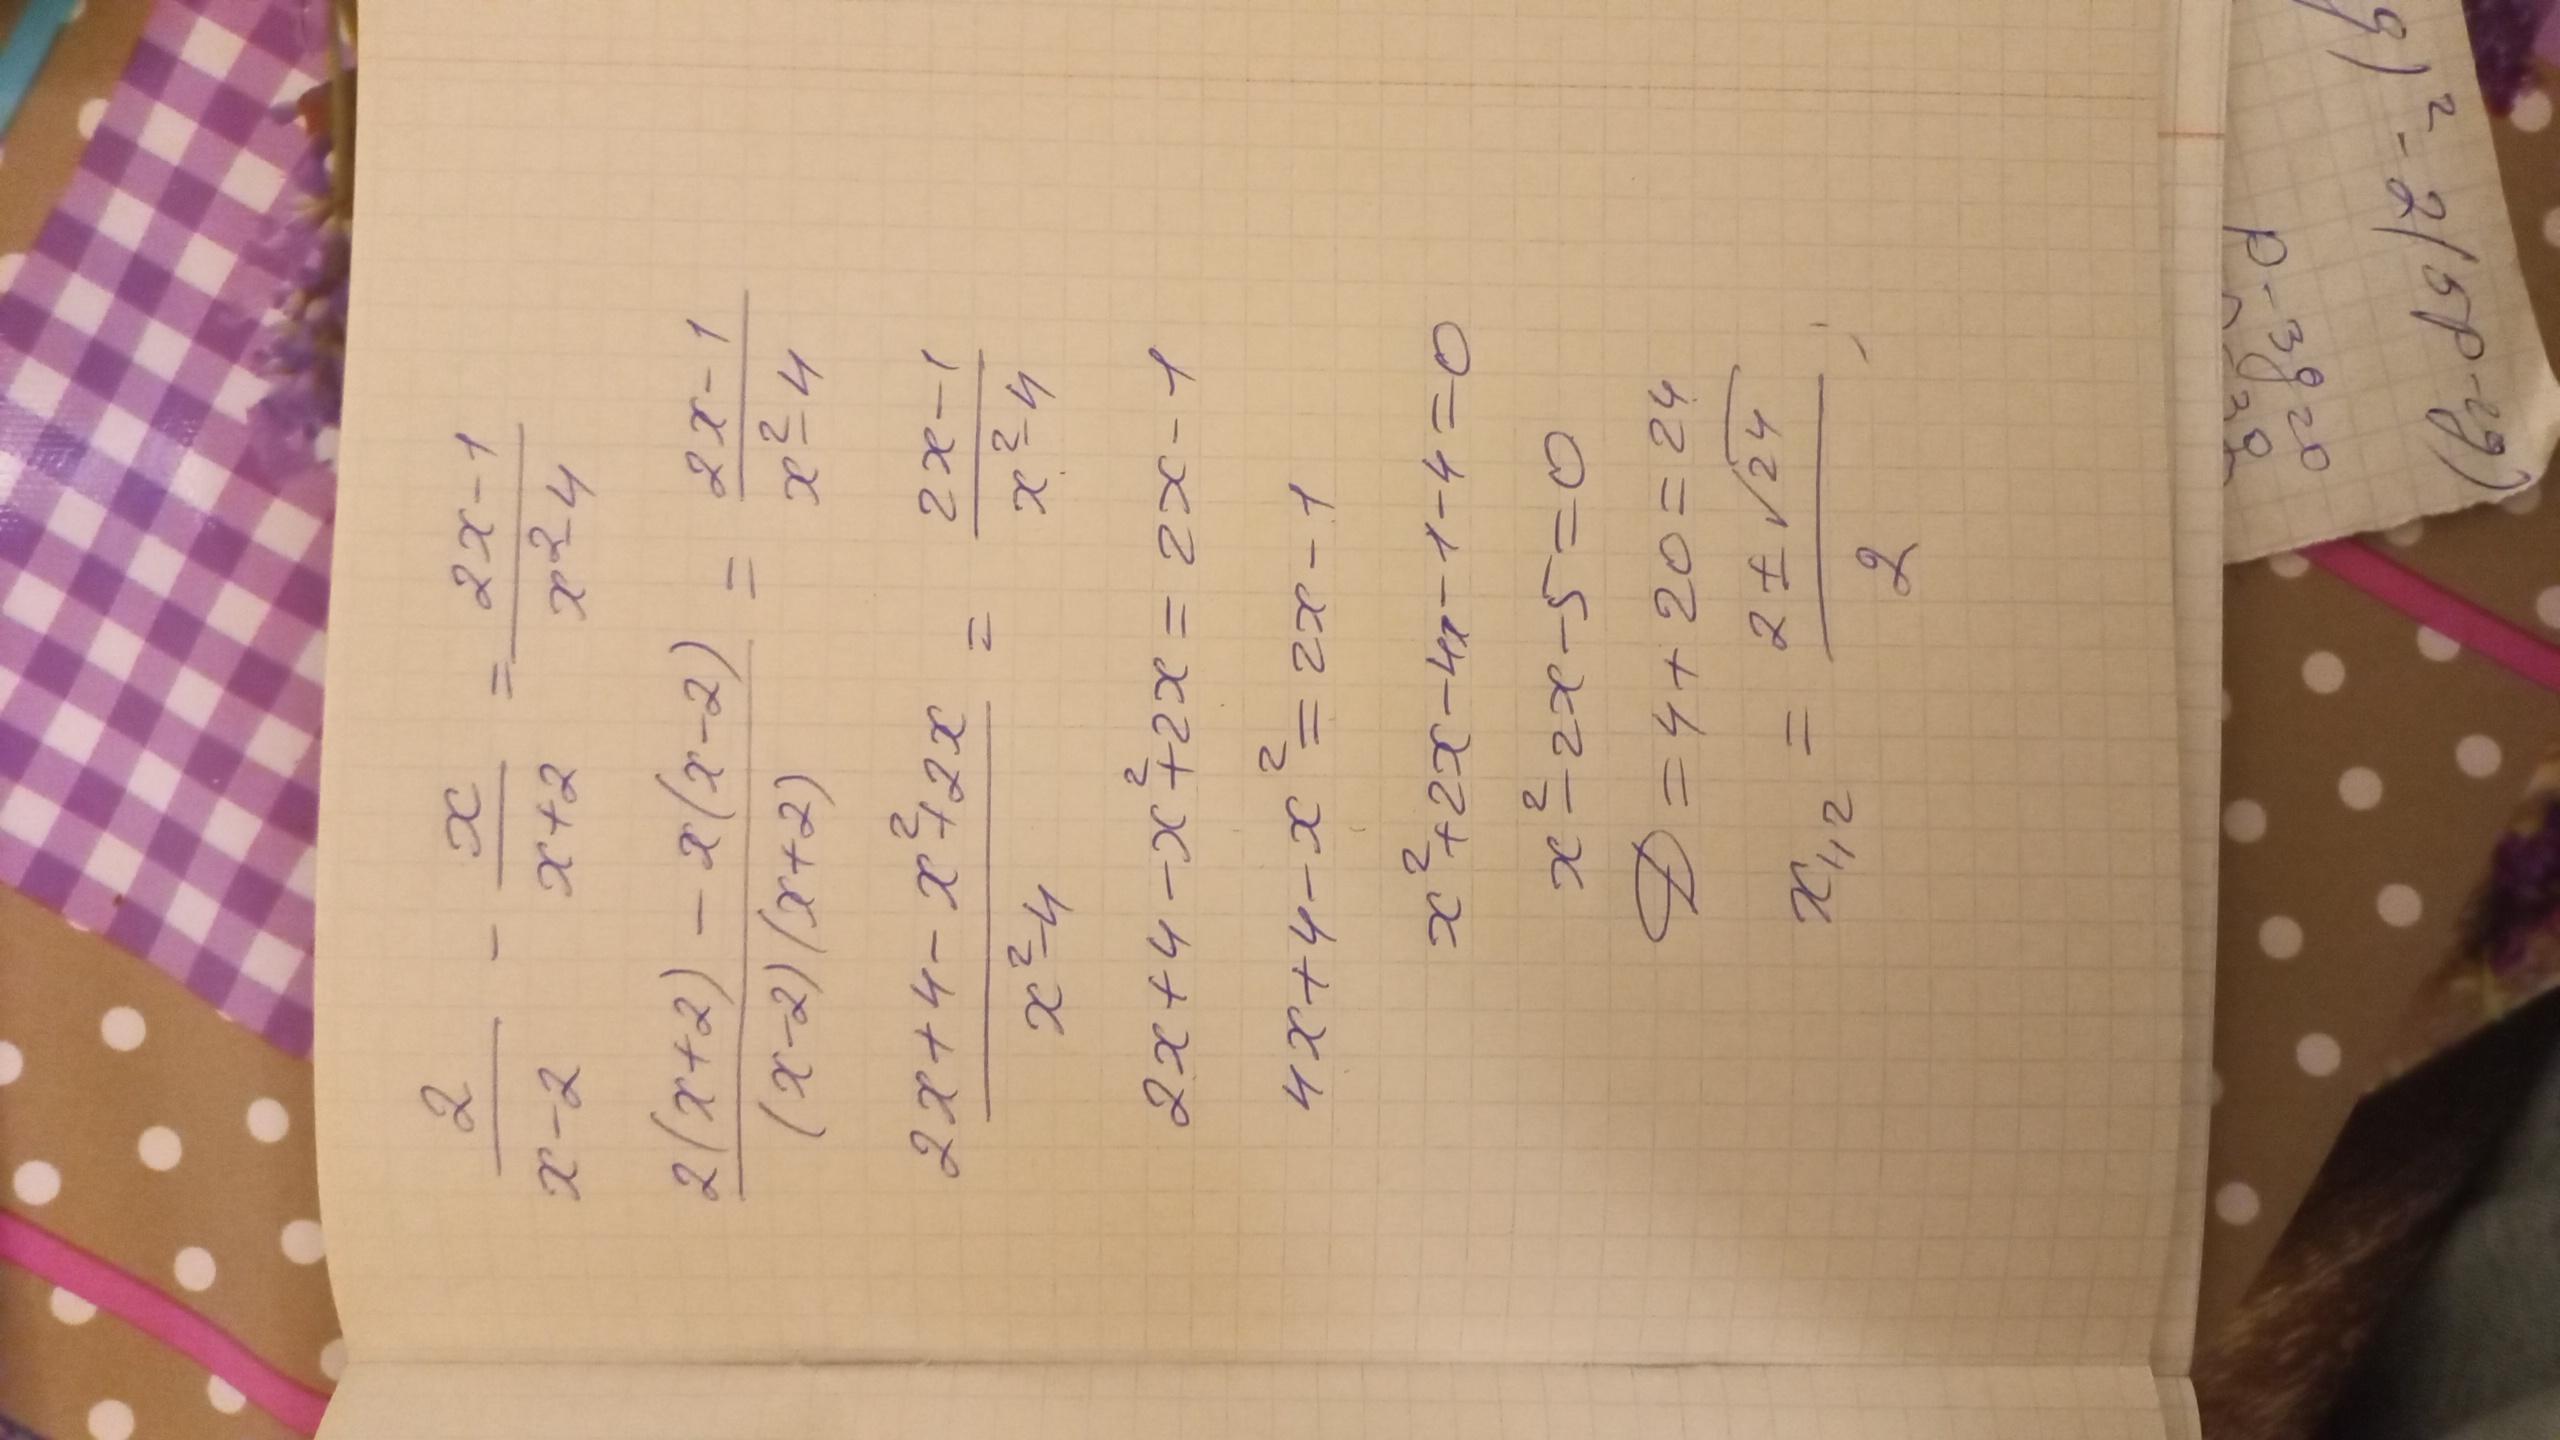 2/(x-2) - x/(x+2) = (2x-1)/(x²-4)
(2(x+2) - x(x-2))/((x-2)(x+2)) = (2x-1)/(x²-4)
(2x+4-x²+2x)/(x²-4) = (2x-1)/(x²-4)
2x+4-x²+2x=2x-1
4x+4-x²=2x-1
x²+2x-4x-1-4=0
x²-2x-5=0
D=4+20=24
x₁,₂ = (2±√24)/2 ;